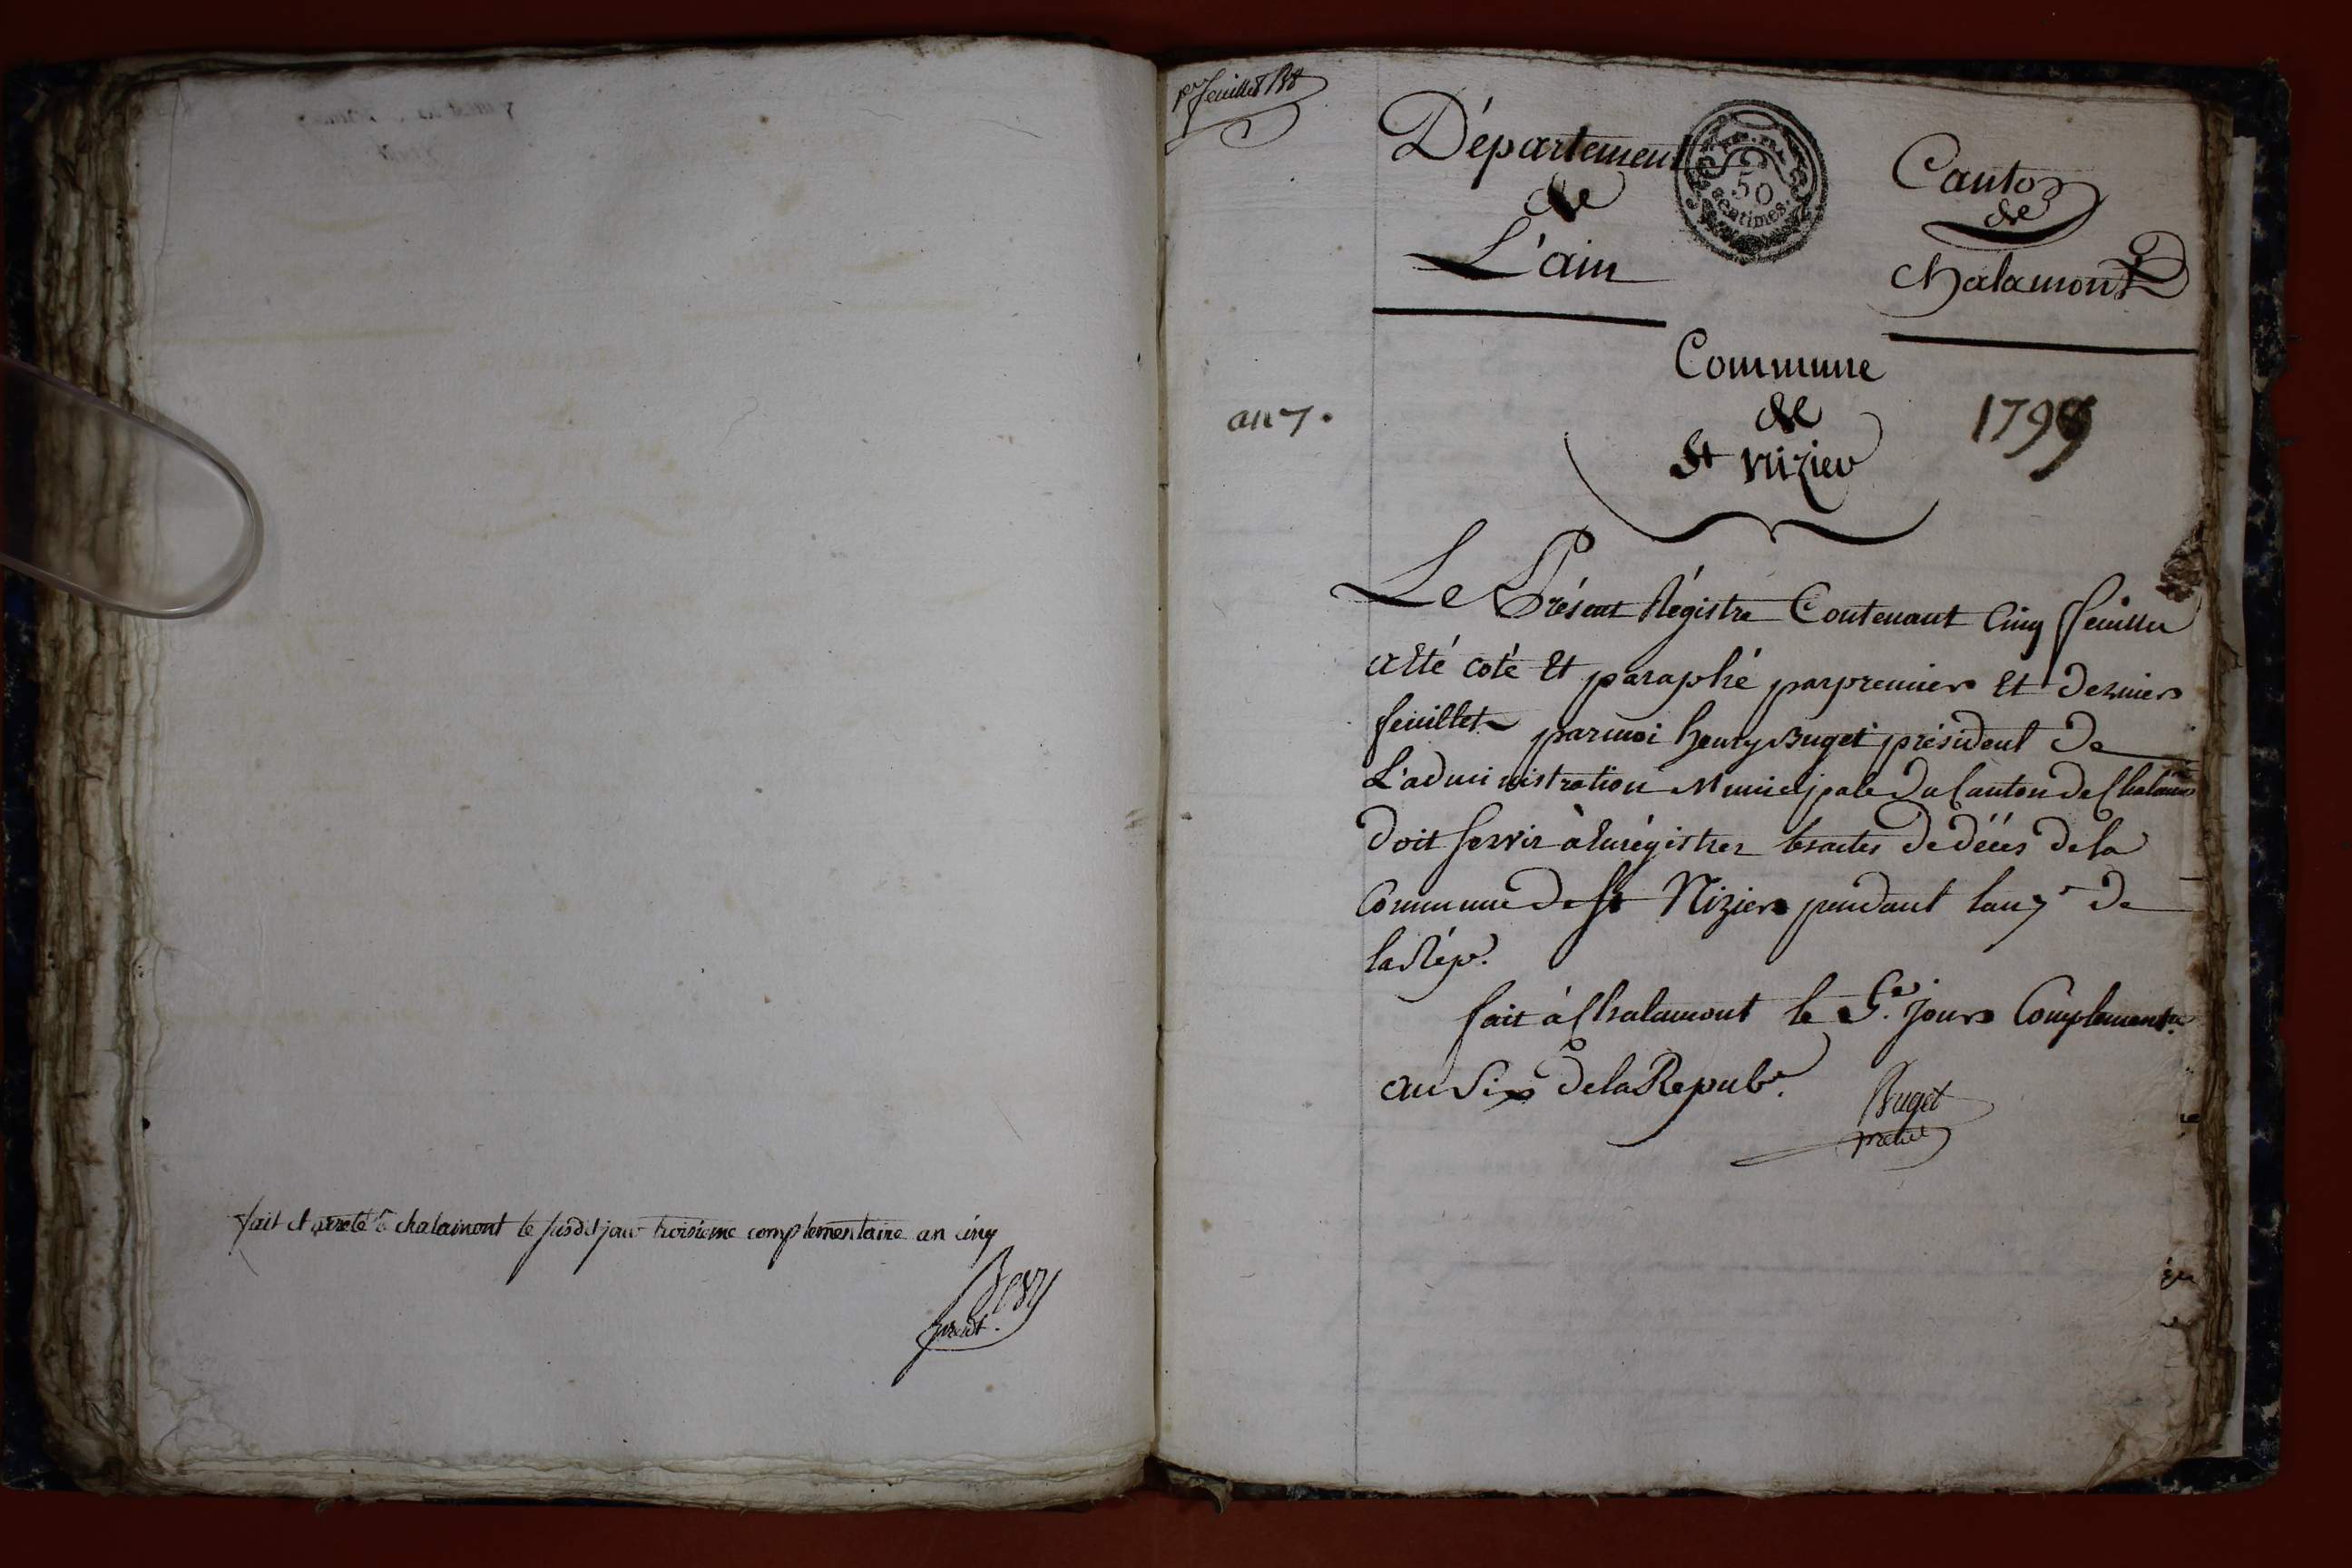 fait et arreté à chalamont le susdit jour troisième complementaire an cinq
presidt.
1er feuillet
Département
de
L'ain
50
centimes
Canton
de
Chalamont
Commune
de
St Nizier
an 7.
1799
Le Présent Régistre Contenant Cinq feuillets
a Eté coté Et paraphé par premier Et dernier
feuillet par moi henry Buget président de
L'administration Municipale du Canton de Chalamt
doit servir à Enrégistrer les actes de décès de la
Commune de St Nizier pendant l'an 7e de
la Rép.
fait à Chalamont le 5e. Jour Complementre.
an Six de la Repube.
Buget